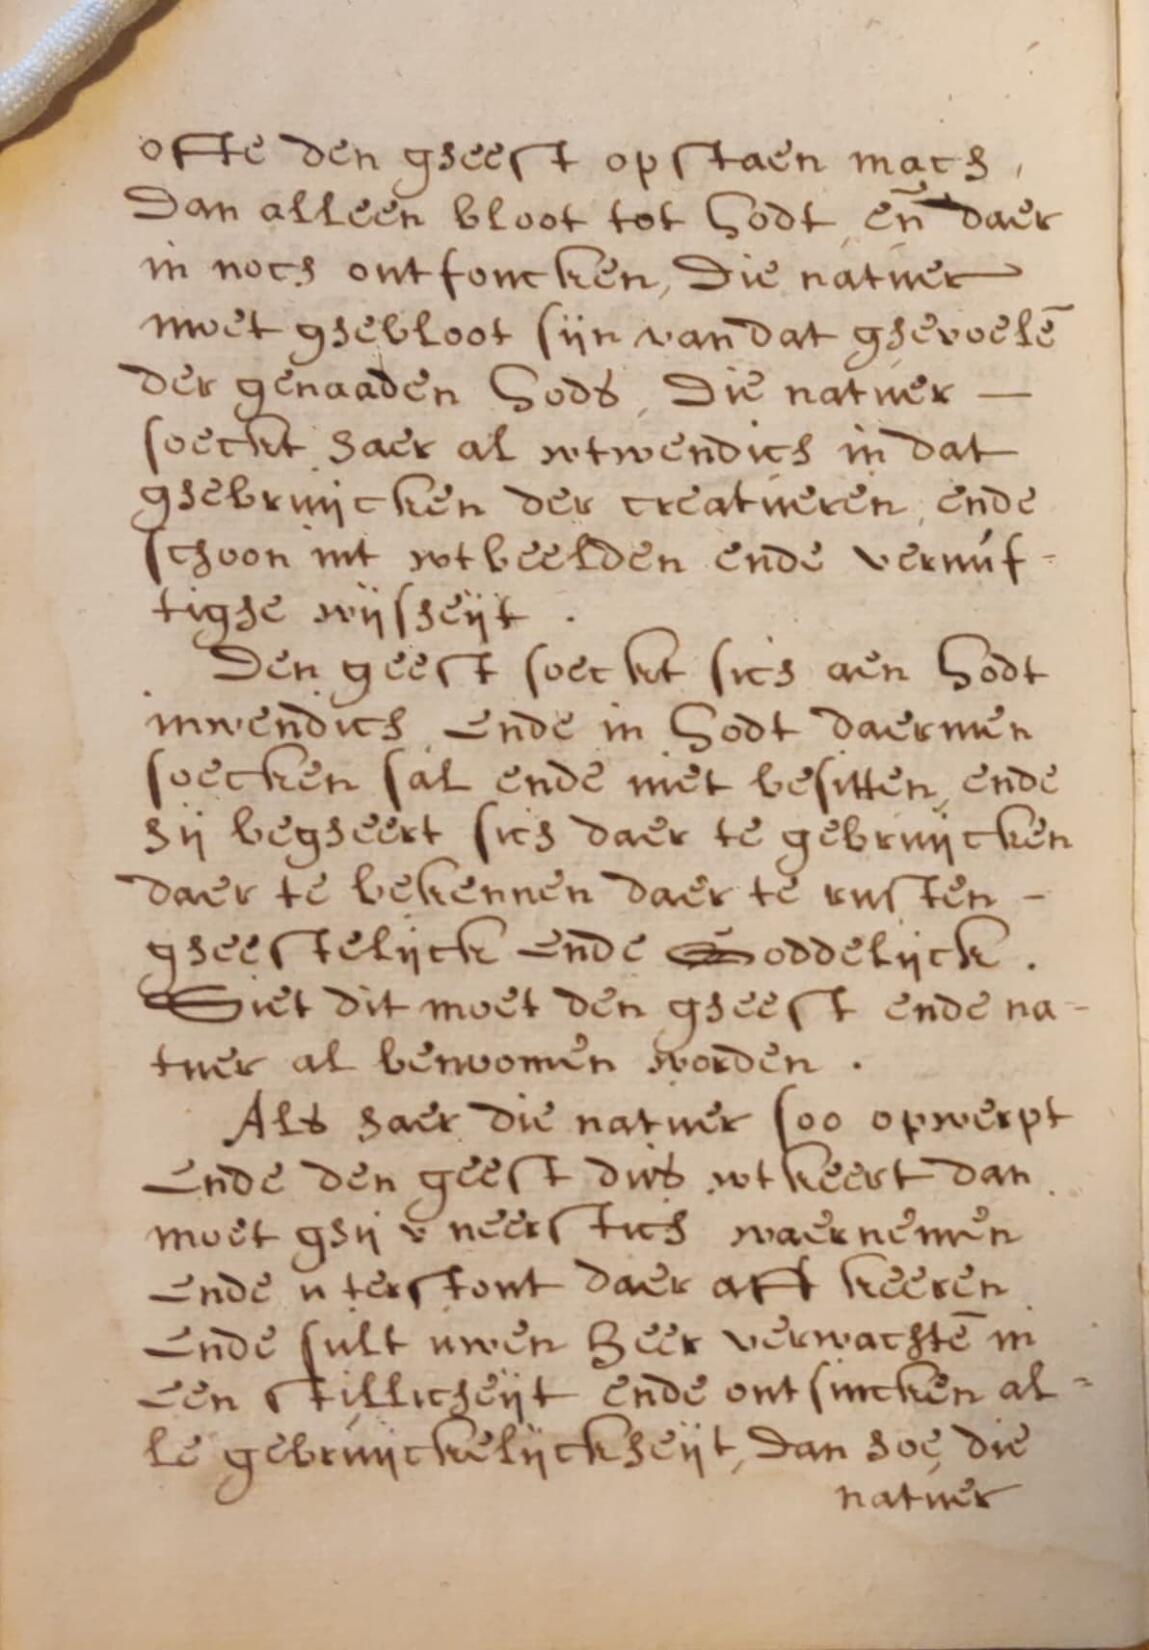 ofte den gheest opstaen mach,
Dan alleen bloot tot Godt, en̄ daer
in noch ontfoncken, Die natuer
moet ghebloot sijn van dat ghevoelē
der genaaden Gods, Die natuer —
soeckt haer al wtwendich in dat
ghebruijcken der creatueren, ende
schoon int wtbeelden ende vernuf-
tighe wijsheijt.
Den geest soeckt sich aen Godt
inwendich Ende in Godt daermen
soecken sal ende niet besitten, ende
hij begheert sich daer te gebruijcken
daer te bekennen daer te rusten -
gheestelijck Ende Goddelijck.
Siet dit moet den gheest ende na-
tuer al benomen worden.
Als haer die natuer soo opwerpt
Ende den geest dus wtkeert dan
moet ghij v neerstich waernemen
Ende u terstont daer aff keeren
Ende sult uwen Heer verwachtē in
Een stillicheijt ende ontsincken al-
le gebruijckelijckheijt, Dan hoe die
natuer